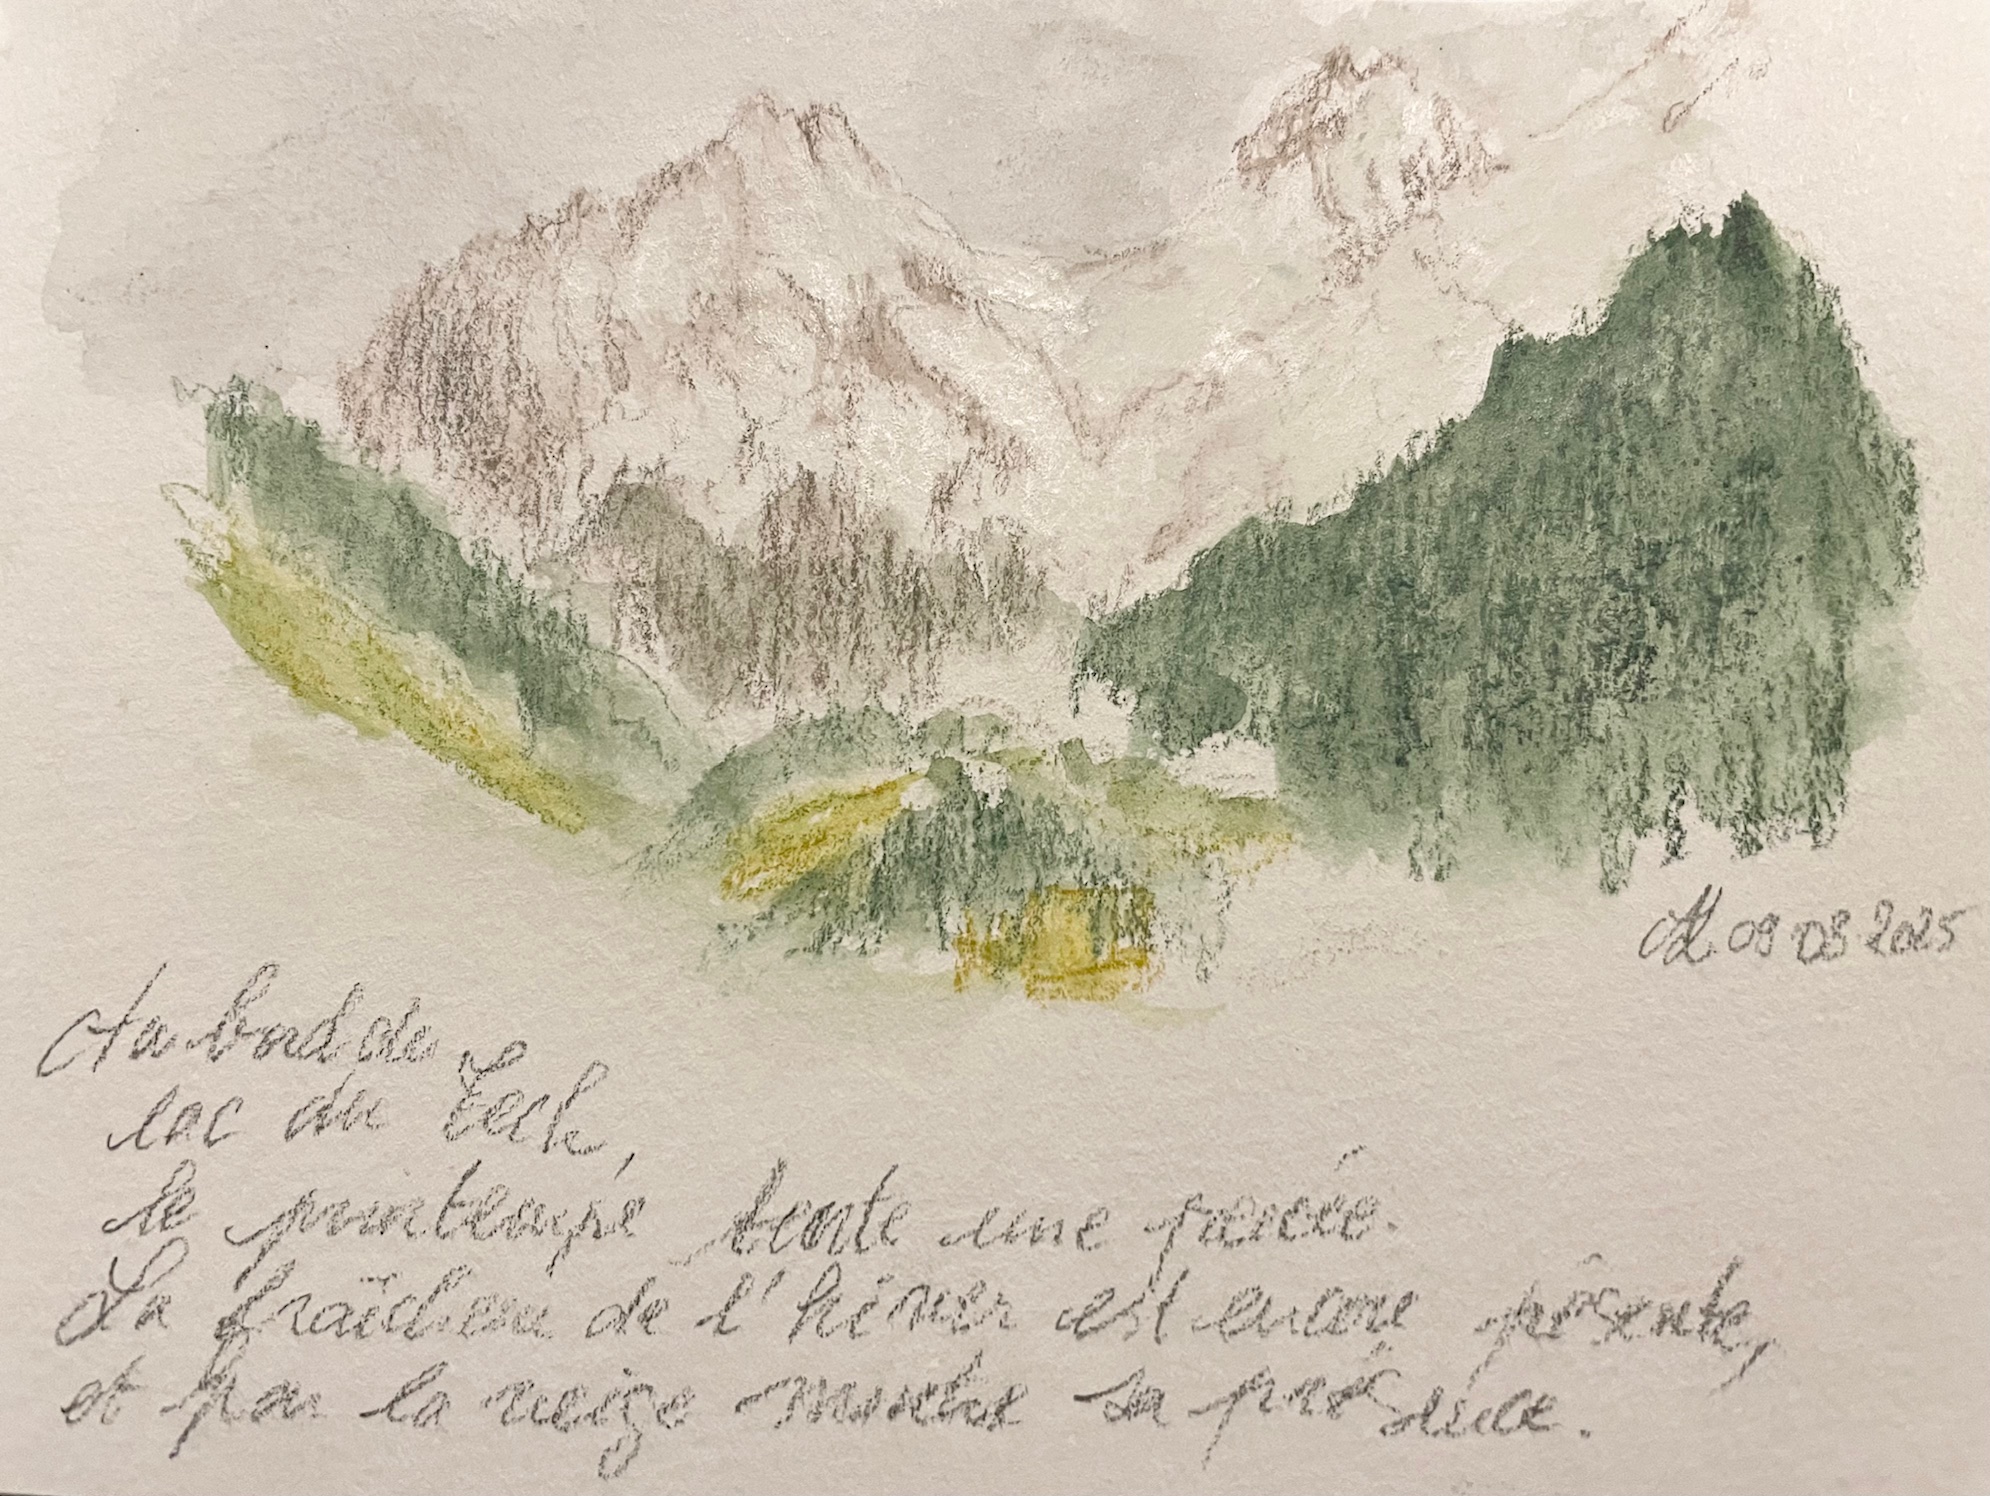 AL 09 03 2025
Au bord du
lac du Tech,
le printemps tente une percée.
La fraîcheur de l'hiver est encore présente,
et par la neige montre sa présence.